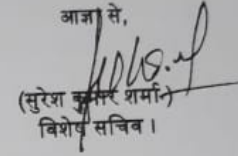 आज्ञा से,
(सुरेश कुमार शर्मा)
विशेष सचिव।